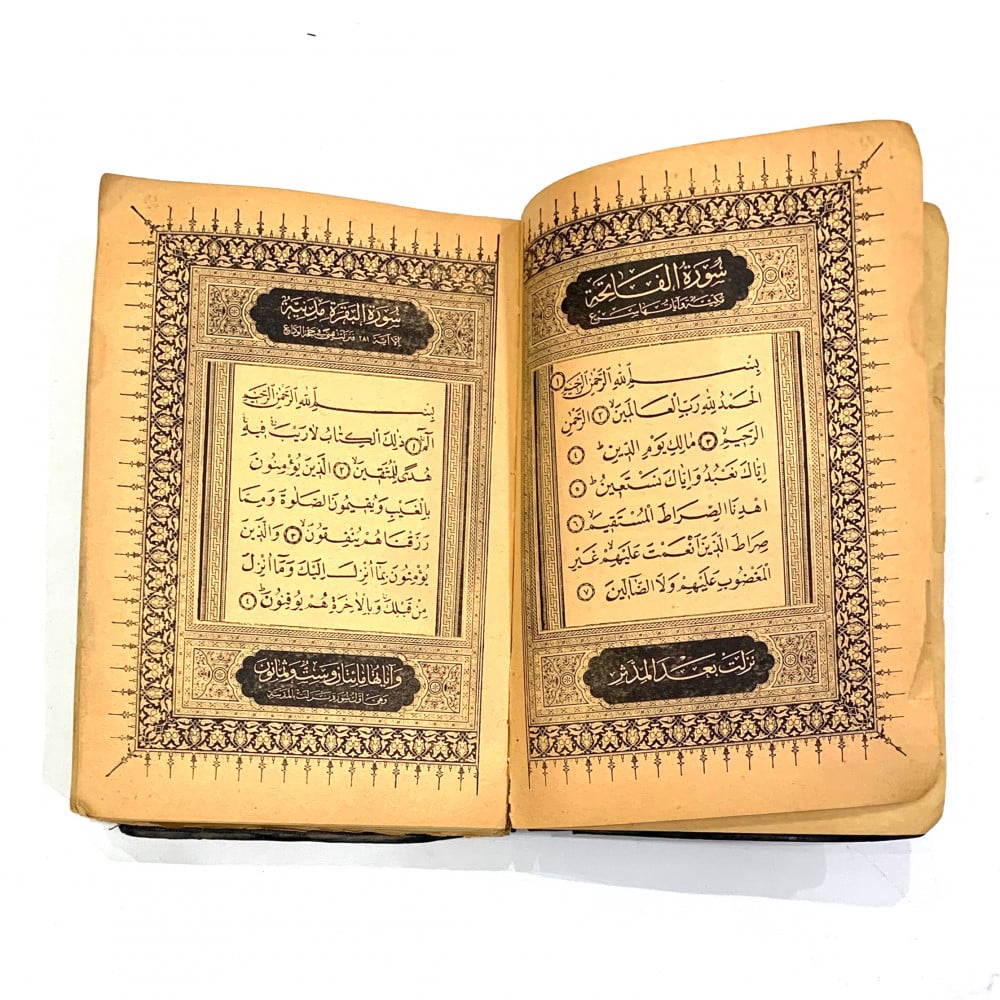 سُورَةُ الْفَاتِحَةِ
مكية وآياتها سبع
بِسْمِ اللَّهِ الرَّحْمٰنِ الرَّحِيمِ ١
الْحَمْدُ لِلَّهِ رَبِّ الْعَالَمِينَ ٢ الرَّحْمٰنِ
الرَّحِيمِ ٣ مَالِكِ يَوْمِ الدِّينِ ٤
إِيَّاكَ نَعْبُدُ وَإِيَّاكَ نَسْتَعِينُ ٥
اهْدِنَا الصِّرَاطَ الْمُسْتَقِيمَ ٦
صِرَاطَ الَّذِينَ أَنْعَمْتَ عَلَيْهِمْ غَيْرِ
الْمَغْضُوبِ عَلَيْهِمْ وَلَا الضَّالِّينَ ٧
نزلت بعد المدثر
سُورَةُ الْبَقَرَةِ مَدَنِيَّةٌ
إلا آية ٢٨١ فنزلت بمنى في حجة الوداع
بِسْمِ اللَّهِ الرَّحْمٰنِ الرَّحِيمِ
الٓمٓ ١ ذٰلِكَ الْكِتَابُ لَا رَيْبَ فِيهِ
هُدًى لِلْمُتَّقِينَ ٢ الَّذِينَ يُؤْمِنُونَ
بِالْغَيْبِ وَيُقِيمُونَ الصَّلٰوةَ وَمِمَّا
رَزَقْنَاهُمْ يُنْفِقُونَ ٣ وَالَّذِينَ
يُؤْمِنُونَ بِمَا أُنْزِلَ إِلَيْكَ وَمَا أُنْزِلَ
مِنْ قَبْلِكَ وَبِالْآخِرَةِ هُمْ يُوقِنُونَ ٤
وآياتها مائتان وست وثمانون
وهي أول سورة نزلت بالمدينة